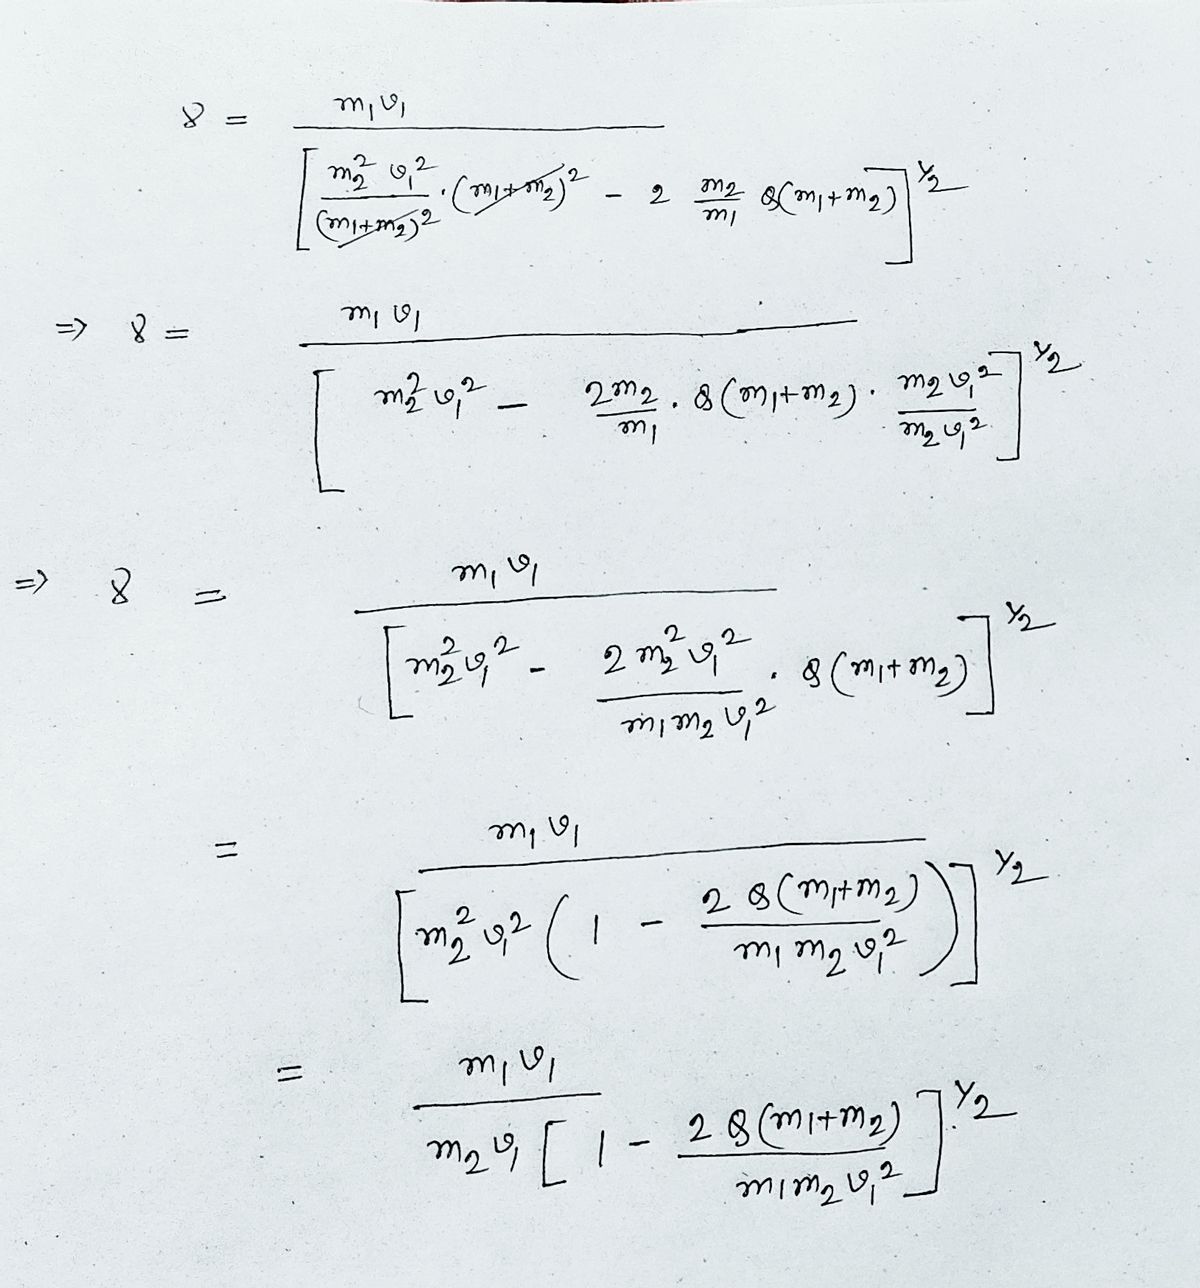 γ = m₁v₁ / [ m₂²v₁²/(m₁+m₂)² · (m₁+m₂)² - 2 m₂/m₁ Q(m₁+m₂) ]^1/2
⇒ γ = m₁v₁ / [ m₂²v₁² - 2m₂/m₁ · Q(m₁+m₂) · m₂v₁²/m₂v₁² ]^1/2
⇒ γ = m₁v₁ / [ m₂²v₁² - 2m₂²v₁²/m₁m₂v₁² · Q(m₁+m₂) ]^1/2
= m₁v₁ / [ m₂²v₁² ( 1 - 2Q(m₁+m₂)/m₁m₂v₁² ) ]^1/2
= m₁v₁ / m₂v₁ [ 1 - 2Q(m₁+m₂)/m₁m₂v₁² ]^1/2